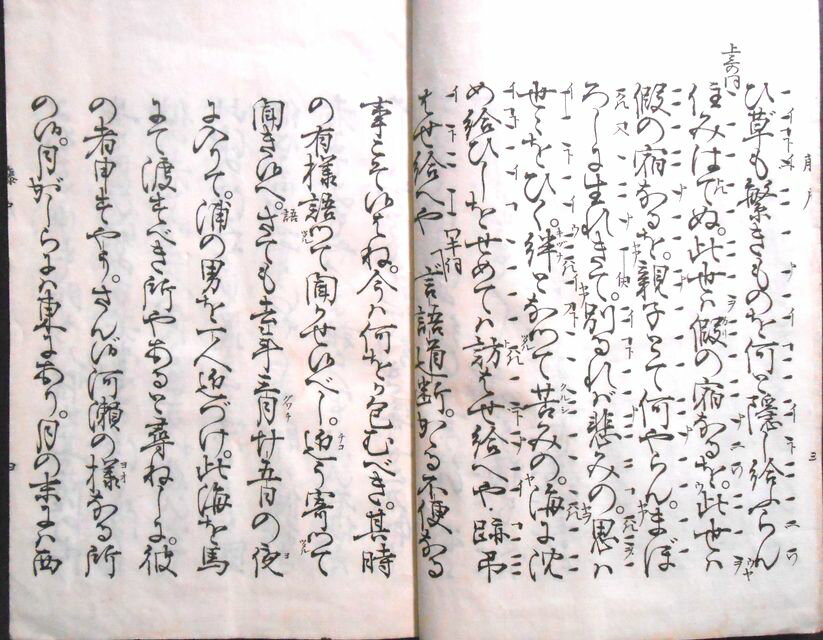 上歌同
ひ草も繁きものを何と隠し給ふらん
住みはてぬ。此世ハ假の宿なるを。此世ハ
假の宿なるを。親子とて何やらん。まぼ
ろしに生れきて。別るれバ悲みの。思ハ
世々をひく。絆となつて苦みの。海に沈
め給ひしをせめてハ訪はせ給へや・跡弔
はせ給へや 言語道断。かゝる不便なる
事こそ候はね。今ハ何をか包むべき。其時
の有様語つて聞かせ候べし。近う寄つて
聞き候へ。語 さても去年三月廿五日の夜
に入りて。浦の男を一人近づけ。此海を馬
にて渡すべき所やあると尋ねしに。彼
の者申すやう。さん候河瀬の様なる所
の候。月がしらにハ東にあり。月の末にハ西